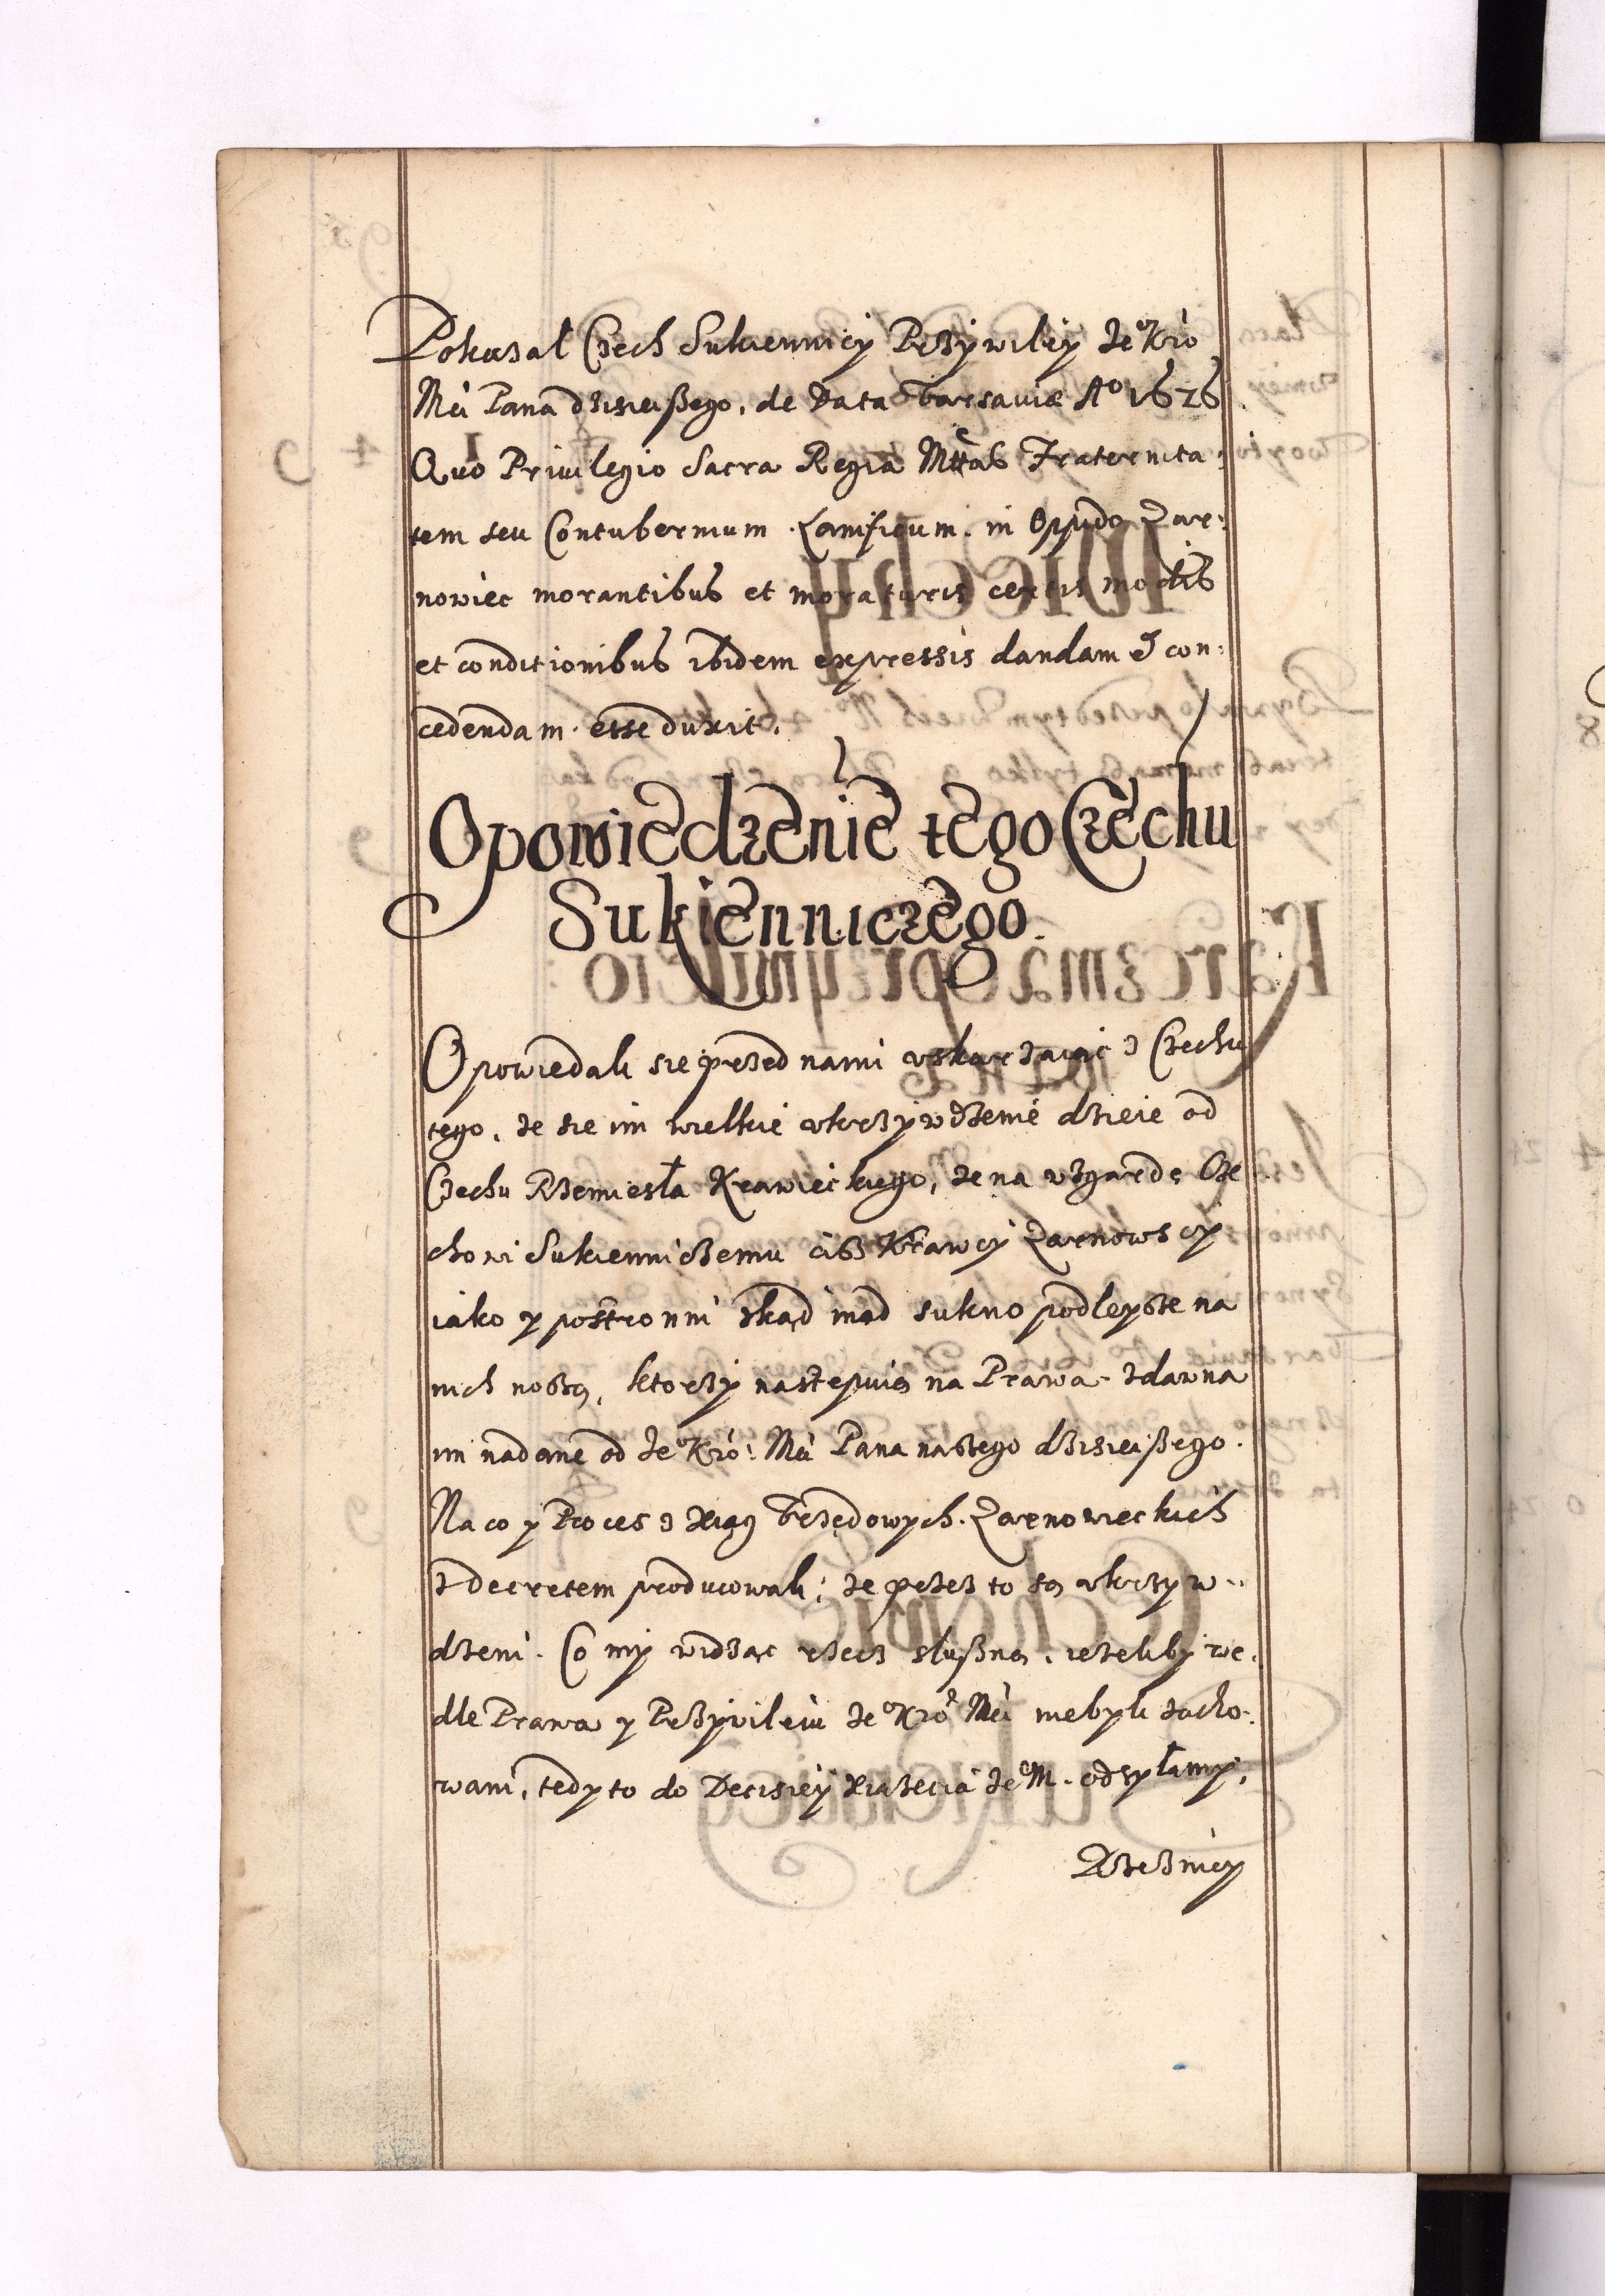 Pokazał Czech Sukiennicy Przywiley Je° Kró
Mći Pana dzisieißego, de Data Varsaviæ A° 1626
Quo Privilegio Sacra Regia Mttas Fraternita:
tem seu Contubernium Lanificum in Oppido Żar:
nowiec morantibus et moraturis certis modis
et conditionibus ibidem expressis dandam et con:
cedendam esse duxit.
Opowiedzenie tego Czechu
Sukienniczego.
Opowiedali sie przed nami uskarzaiąc z Czechu
tego, że sie im wielkie ukrzywdzenie dzieie od
Czechu Rzemiesła Krawieckiego, że na wzgardę Cze
chowi Sukienniczemu ciż Krawcy Żarnowscy
iako y postronni zkąd inąd sukno podleysze na
nich noszą, ktorzy nastepuią na Prawa zdawna
im nadane od Je° Kró: Mći Pana naszego dzisieißego.
Na co y Proces z Xiąg Urzędowych Żarnowieckich
z decretem producowali; że przez to są ukrzyw-
dzeni. Co my widząc rzecz słußną, ieżeliby we:
dle Prawa y Przywileiu Je° Kró Mći niebyli zacho:
wani, tedy to do Decisiey Xiążęcia Je° M. odsyłamy.
Rzeźnicy